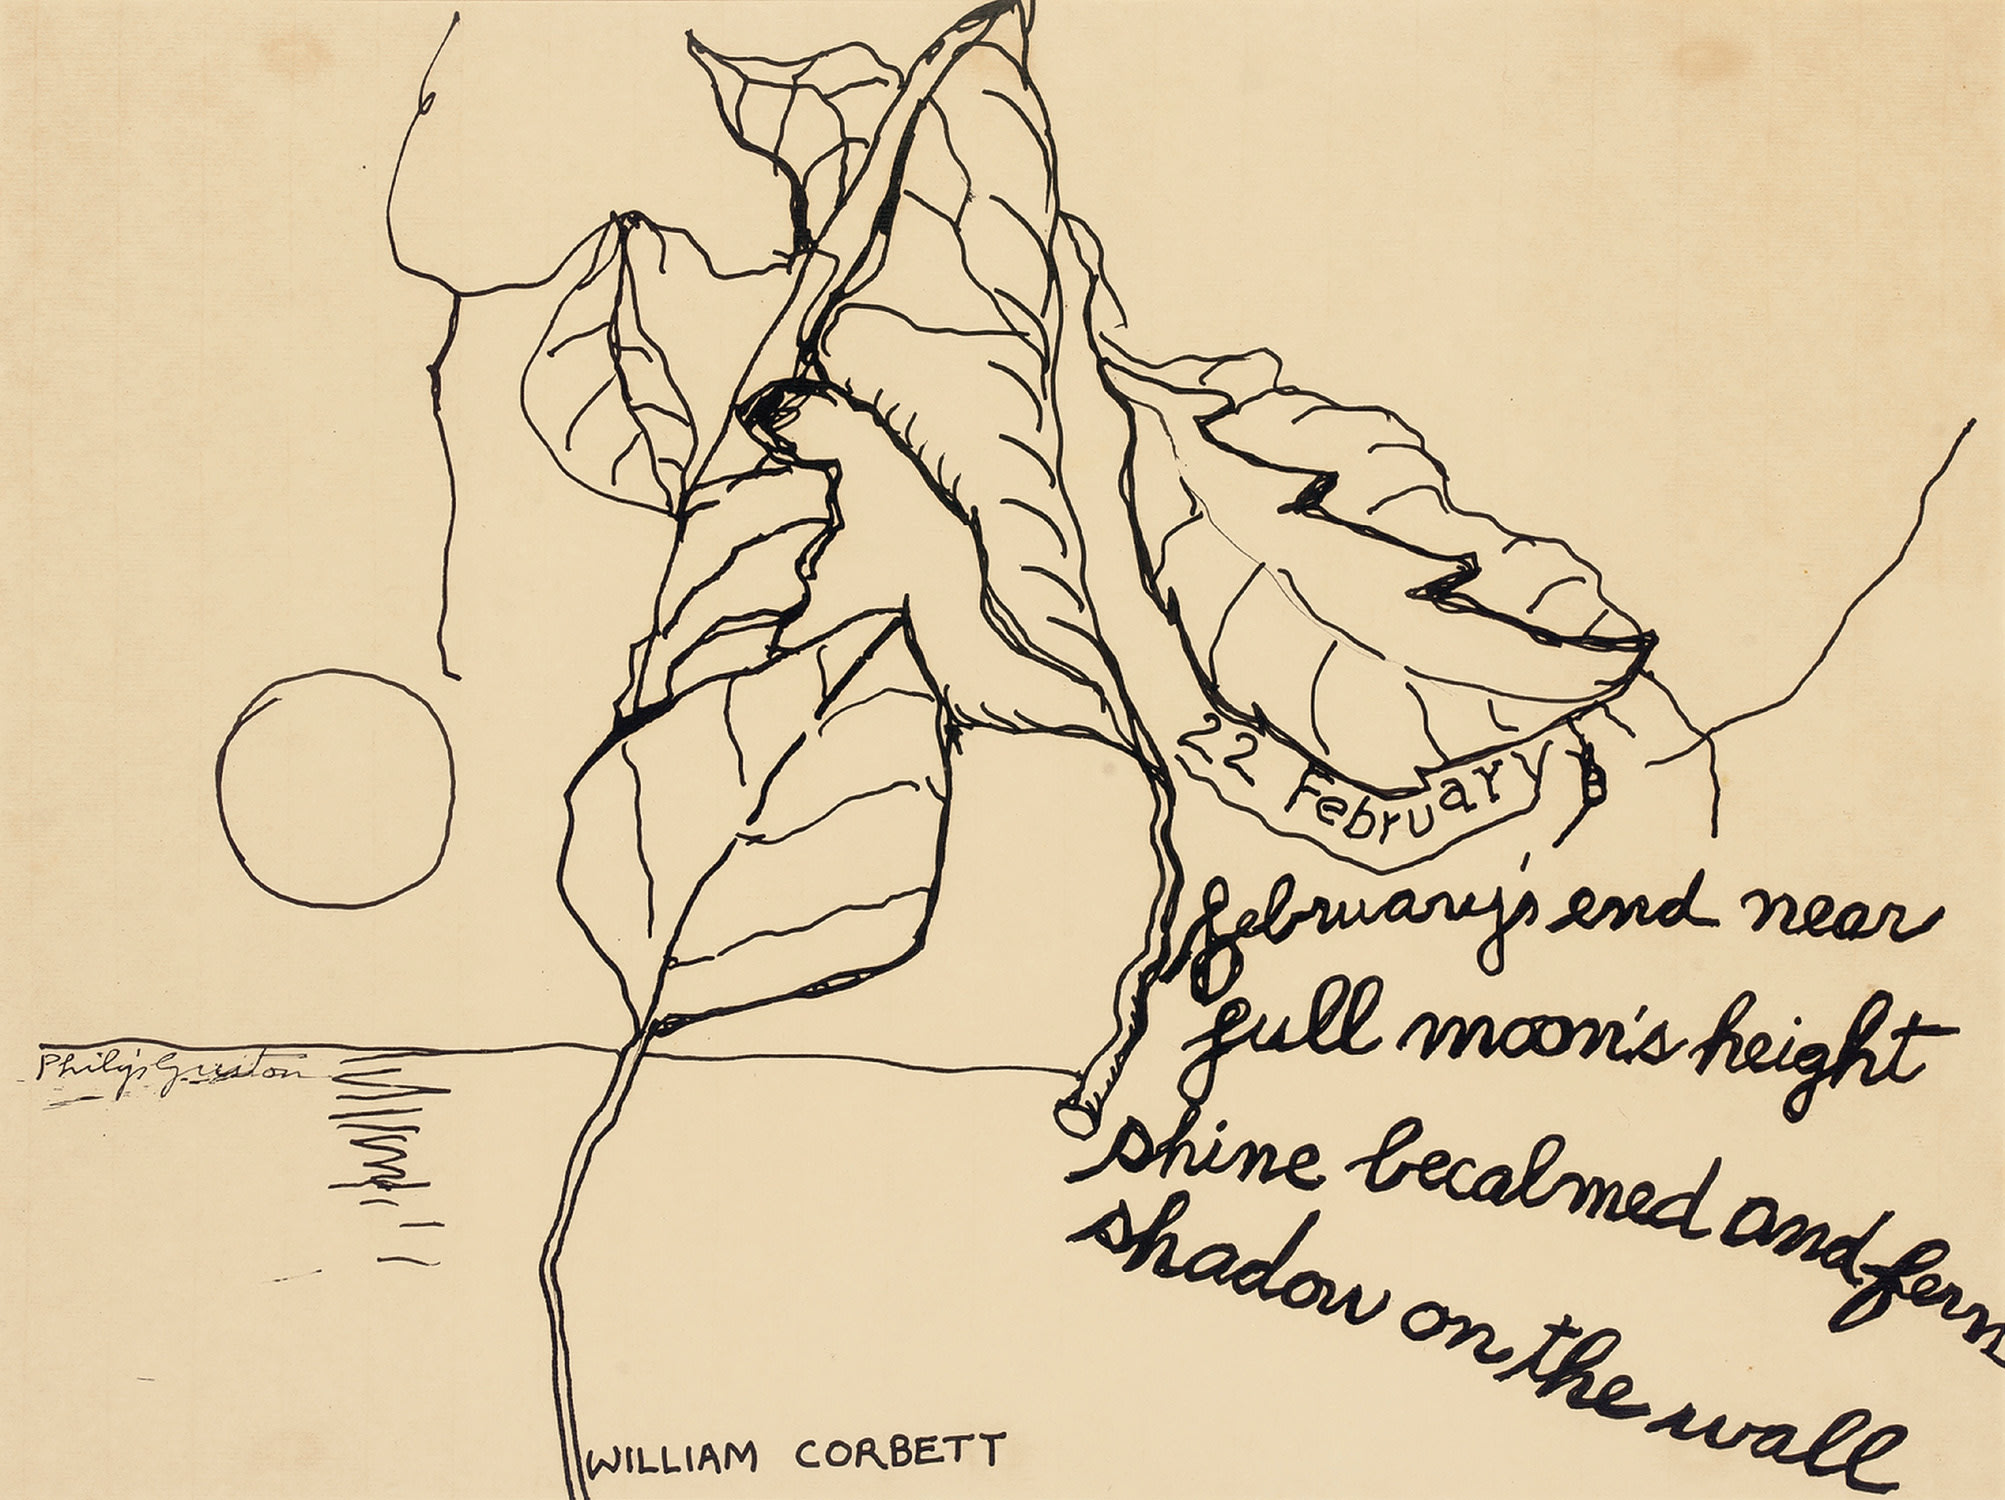 22 February
february's end near
full moon's height
shine becalmed and fern
shadow on the wall
Philip Guston
WILLIAM CORBETT